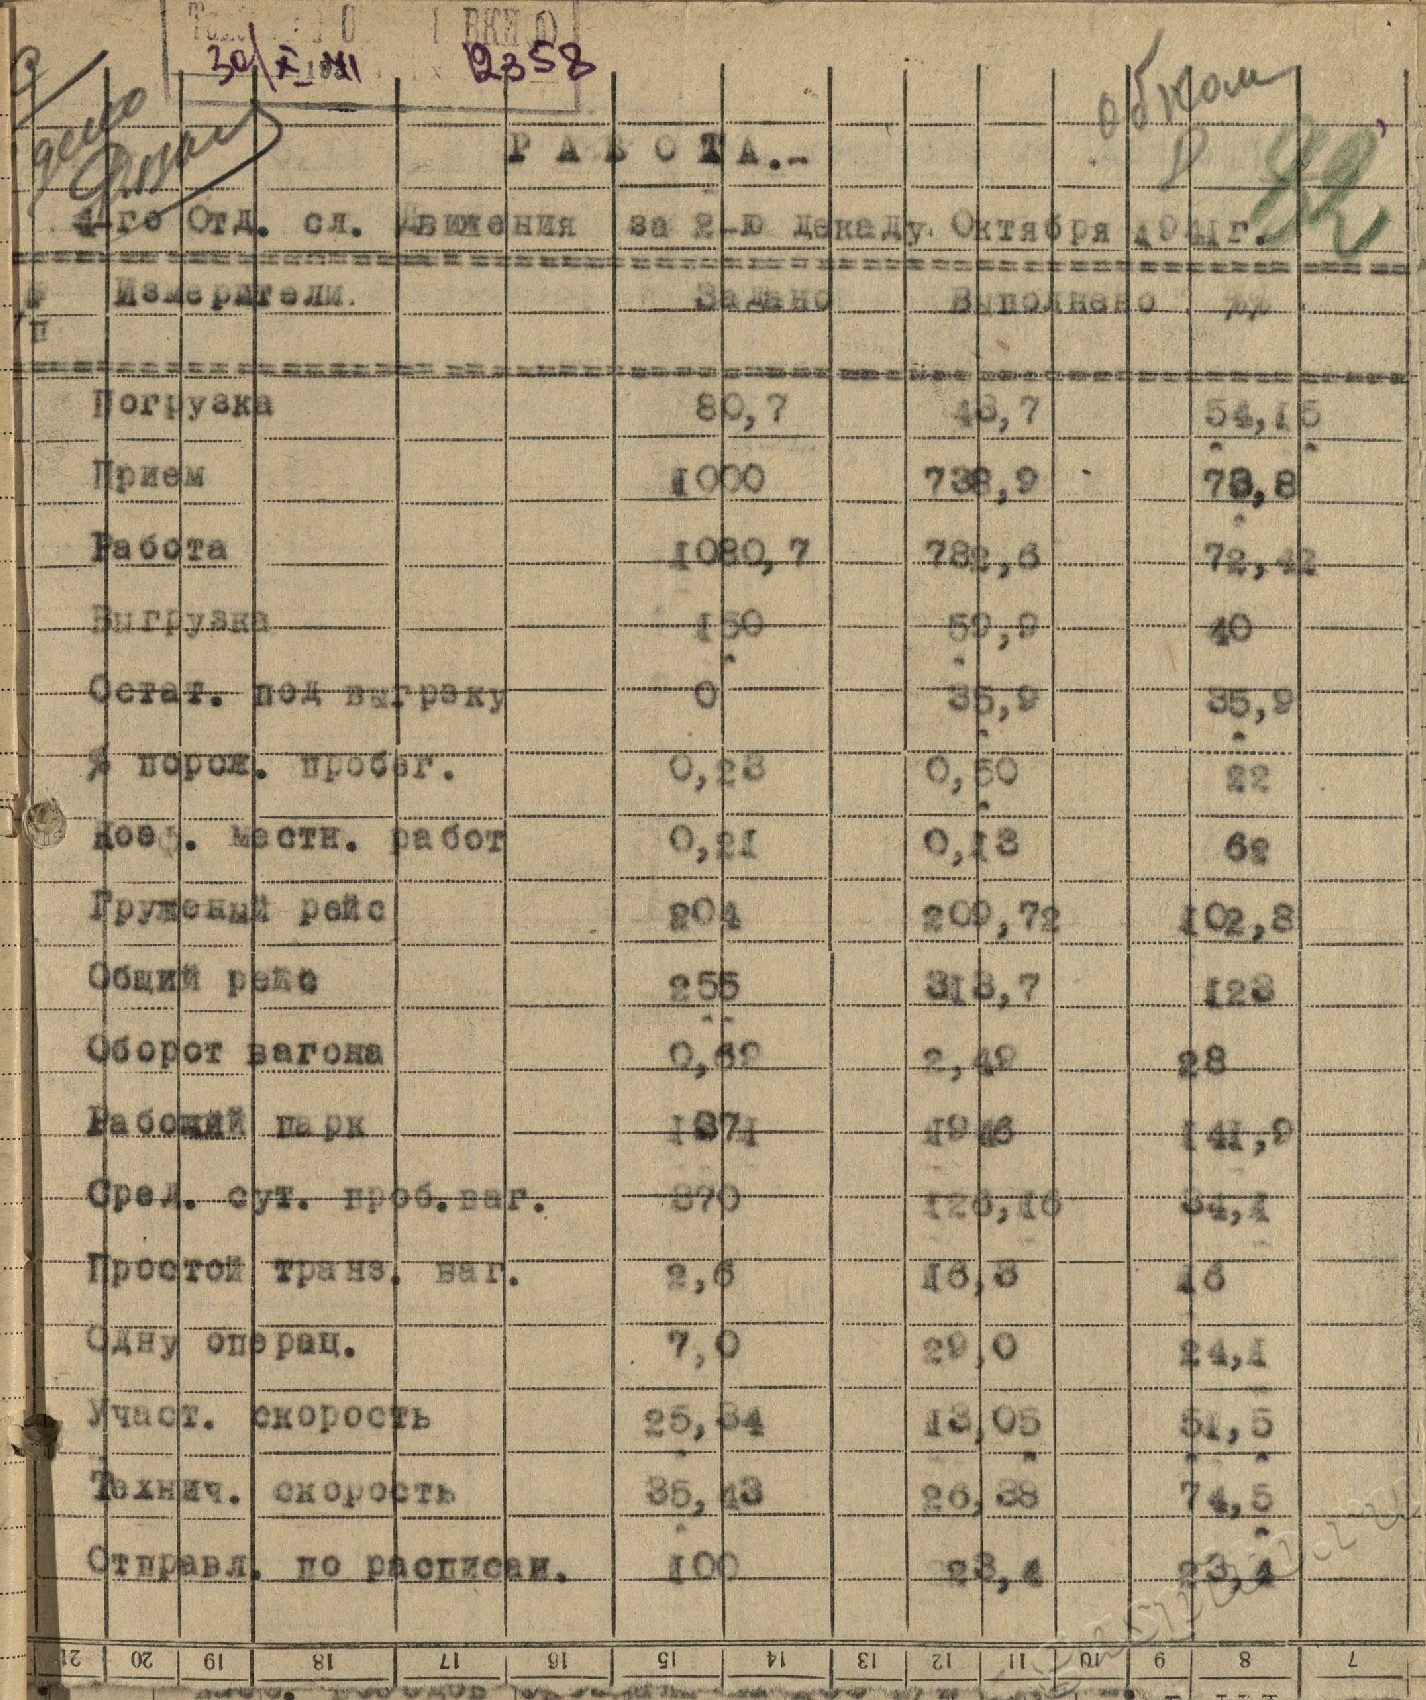 ВКП(б)
30/X 41 2358
дело
обком
82
РАБОТА.-
4-го Отд. сл. Движения за 2-ю декаду Октября 1941г.
п Измерители. Задано Выполнено %%
Погрузка 80,7 43,7 54,15
Прием 1000 738,9 73,8
Работа 1080,7 782,6 72,42
Выгрузка 150 59,9 40
Остат. под выгрзку 0 35,9 35,9
% порож. пробег. 0,23 0,50 22
Коэф. местн. работ 0,21 0,13 62
Груженый рейс 204 209,72 102,8
Общий рейс 255 313,7 123
Оборот вагона 0,69 2,49 28
Рабочий парк 1371 1946 141,9
Сред. сут. проб.ваг. 370 126,16 34,1
Простой транз. ваг. 2,6 16,3 16
Одну операц. 7,0 29,0 24,1
Участ. скорость 25,34 13,05 51,5
Технич. скорость 35,43 26,38 74,5
Отправл. по расписан. 100 23,4 23,4
21 20 19 18 17 16 15 14 13 12 11 10 9 8 7